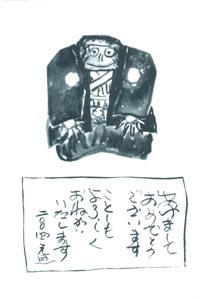 あけまして
おめでとう
ございます
ことしも
よろしく
おねがい
いたします